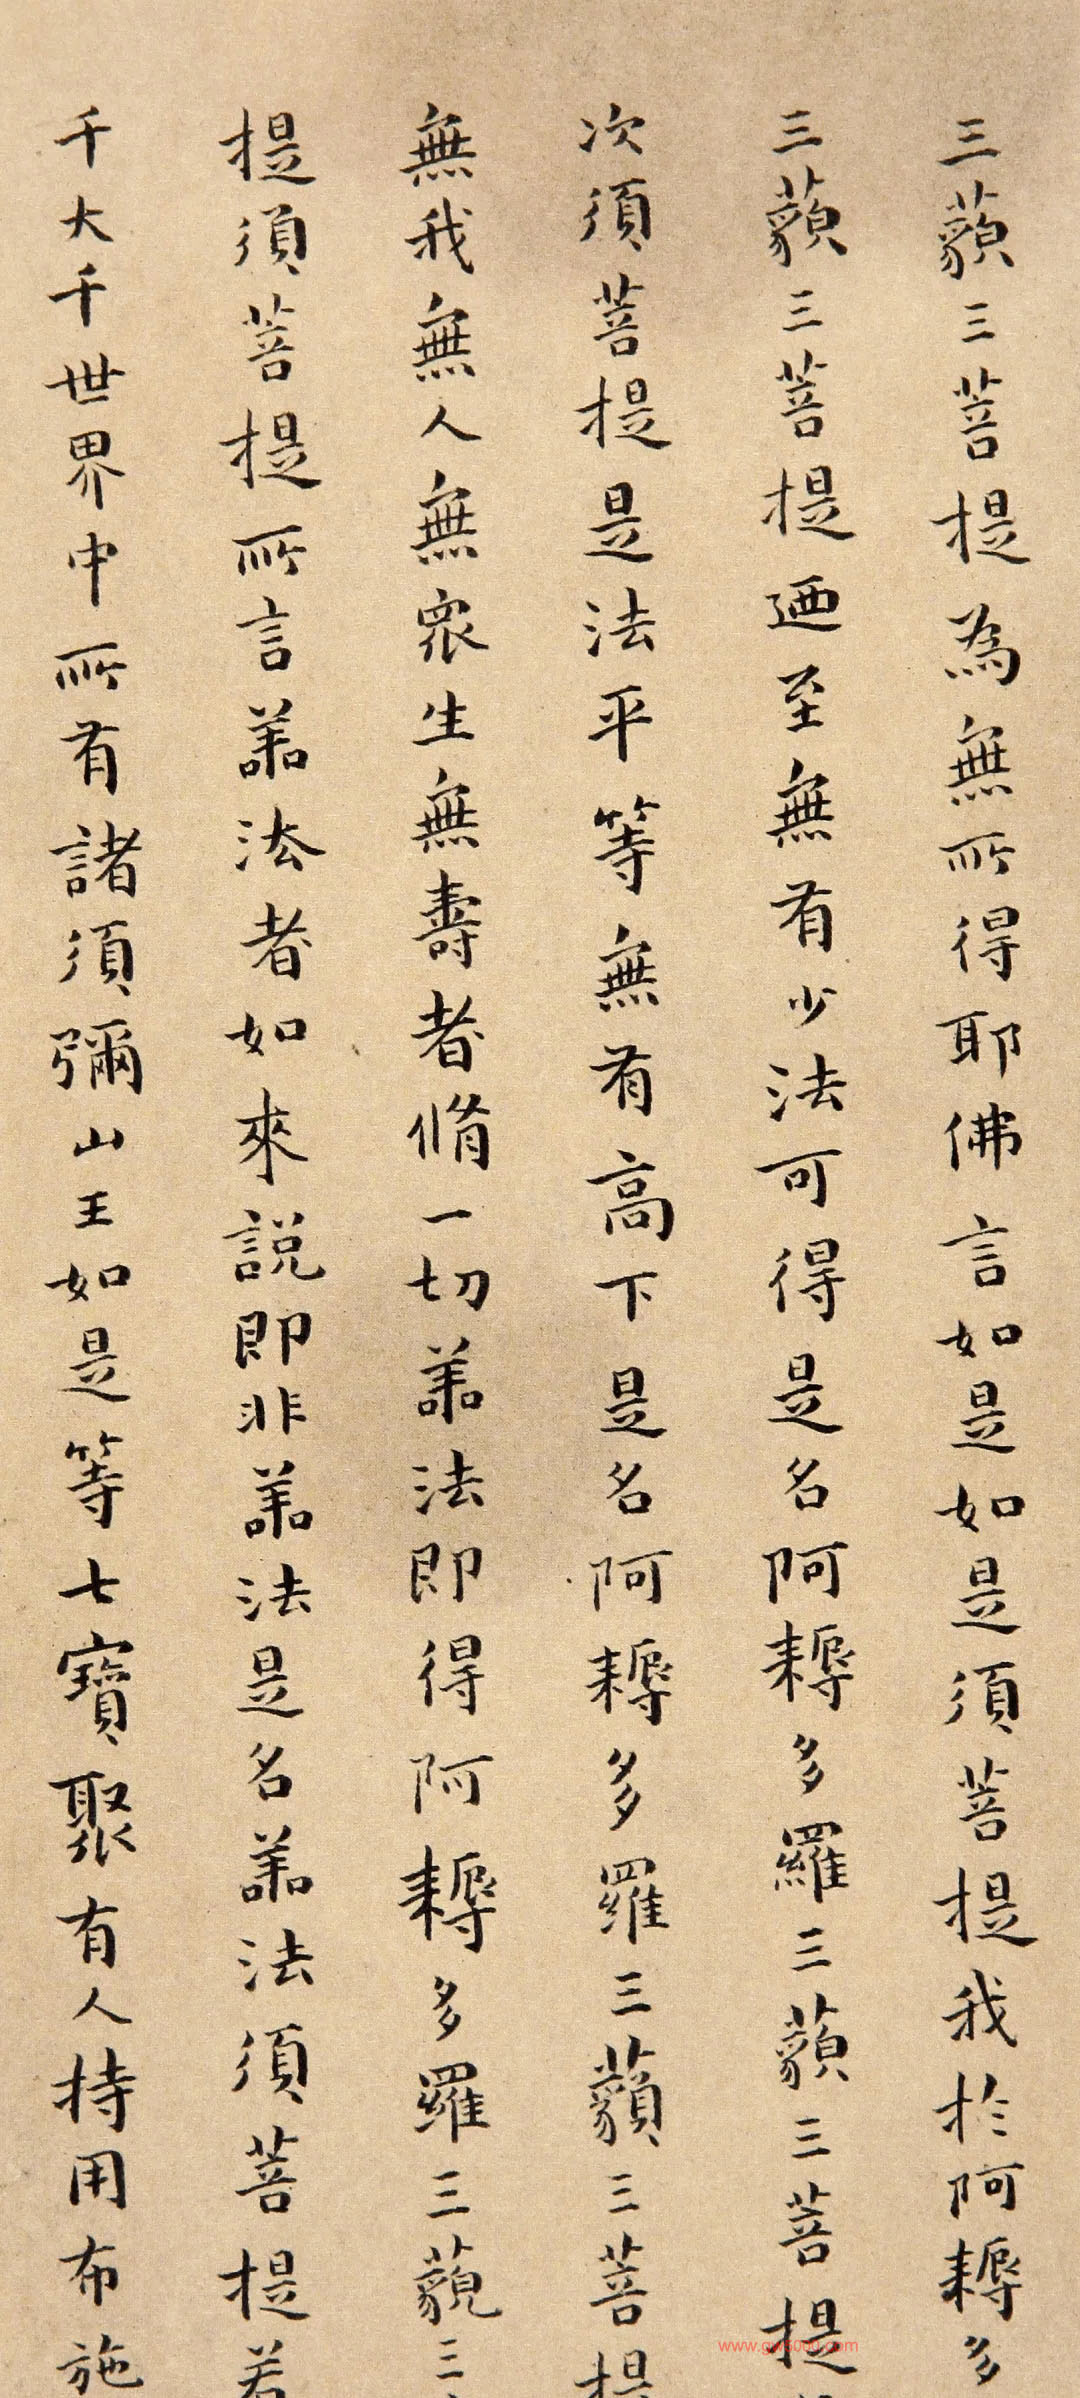 三藐三菩提為無所得耶佛言如是如是須菩提我於阿耨多
三藐三菩提廼至無有少法可得是名阿耨多羅三藐三菩提
次須菩提是法平等無有高下是名阿耨多羅三藐三菩提
無我無人無眾生無壽者脩一切善法即得阿耨多羅三藐三
提須菩提所言善法者如來説即非善法是名善法須菩提若
千大千世界中所有諸須彌山王如是等七寶聚有人持用布施
www.gw5000.com